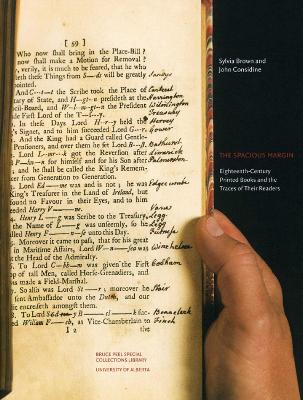 [ 59 ]
Who now shall bring in the Place-Bill?
now shall make a Motion for Removal?
, verily, it is much to be feared, that he who
leth these Things from S—ds will be greatly
Sandys
pointed.
And C—t the Scribe took the Place of
ary of State, and H—n president at the
Council-Board, and W—n president in the
the First Lord of the T—y.
Treasury
In these Days Lord H—y held the
Hervey
's Signet, and to him succeeded Lord G—r.
Gower
And the King had a Guard called Gentle-
Pensioners, and over them he set Lord B—t.
Bathurst
Lord L—k got the Reversion after
Limerick
n for himself and for his Son after
and he shall be called the King's Remem-
er from Generation to Generation.
Lord Ed—me was and is not; he was
Edgecombe
King's Treasurer in the Land of Ireland, but
ound no Favour in their Eyes, and to him
eeded Harry V—e.
Vane
Henry L—g was Scribe to the Treasury,
Legg
the Name of L—g was unseemly, so he
called Henry F—e unto this Day.
Furnese
Moreover it came to pass, that for his great
in Maritime Affairs, Lord W—a was
Winchelsea
at the Head of the Admiralty.
To Lord C—m was given the First
Cobham
op of tall Men, called Horse-Grenadiers, and
was made a Field-Marshal.
So alsis was Lord St—r; moreover he
Stair
sent Ambassador unto the Dutch, and our
entreth amongst them.
To Lord Sid—y B—k suc-
Beauclerk
ed William F—h, as Vice-Chamberlain to
Finch
I 2
the
Sylvia Brown and
John Considine
THE SPACIOUS MARGIN
Eighteenth-Century
Printed Books and the
Traces of Their Readers
BRUCE PEEL SPECIAL
COLLECTIONS LIBRARY
UNIVERSITY OF ALBERTA